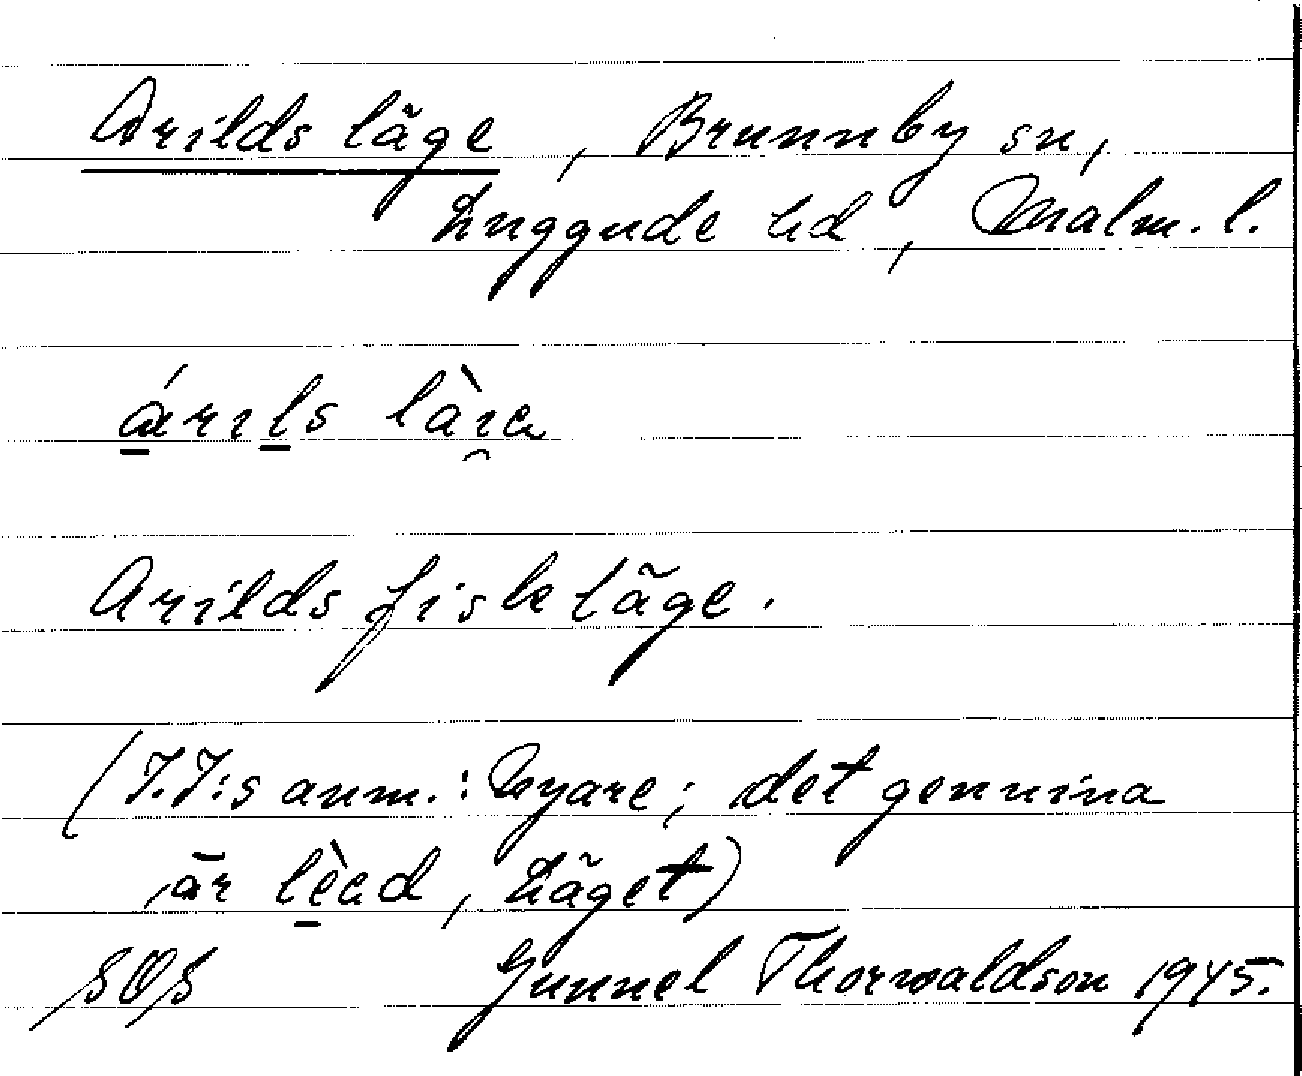 Arilds läge, Brunnby sn,
Luggude hd, Malm. l.
árıls làıa
Arilds fiskläge.
(I.I:s anm.: Nyare; det genuina
är lèad, Läget)
SOS Gunnel Thorwaldson 1945.